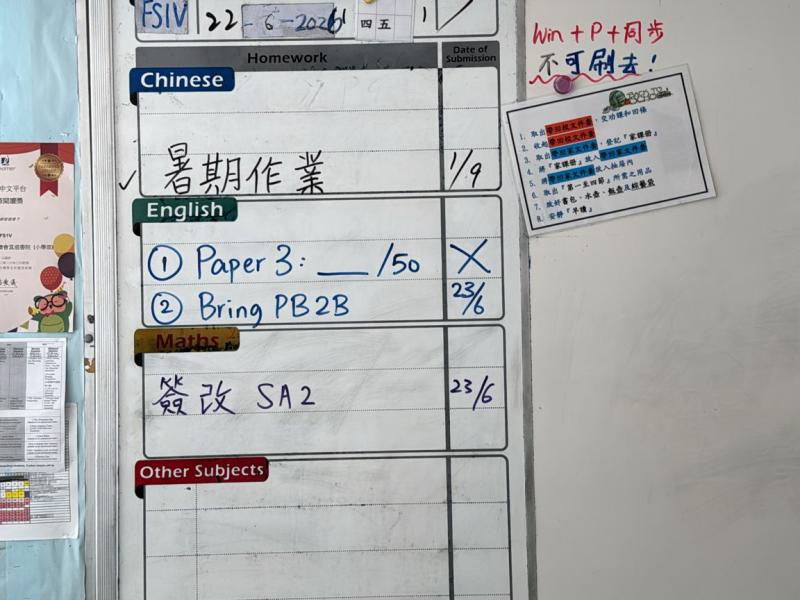 FS1V 22-6-2026 四 五
Win + P + 同步
不可刷去!
Homework Date of Submission
Chinese
✓ 暑期作業 1/9
English
① Paper 3: ___ /50 X
② Bring PB2B 23/6
Maths
簽改 SA2 23/6
Other Subjects
1. 取出學回校文件套,交功課和回條
2. 收起學回校文件套
3. 取出學回家文件套,登記『家課冊』
4. 將『家課冊』放入學回家文件套
5. 將學回家文件套放入抽屜內
6. 取出『第一至四節』所需之用品
7. 放好書包、水壺、飯壺及餐袋
8. 安靜『早讀』
中文平台
FS1V